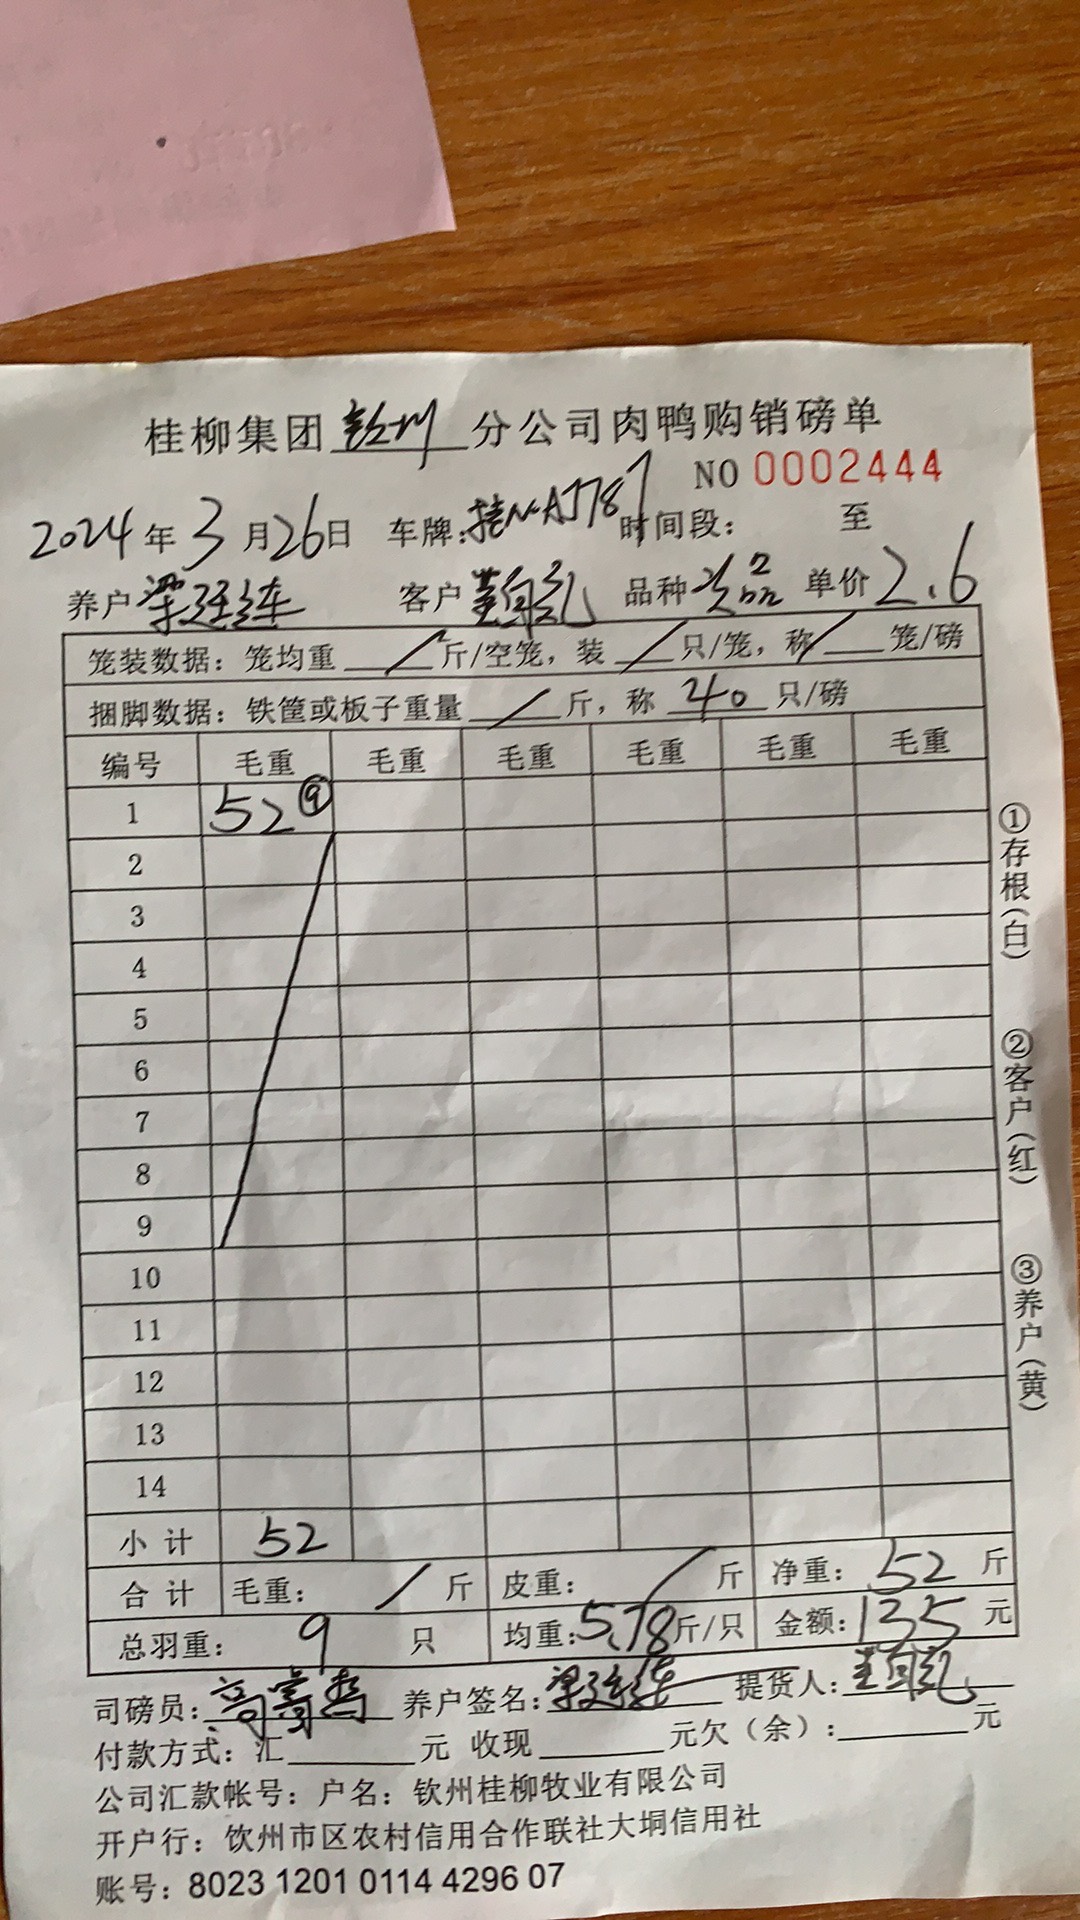 桂柳集团钦州分公司肉鸭购销磅单
NO 0002444
2024年3月26日 车牌:桂NAJ787 时间段: 至
养户梁廷连 客户 品种次品2 单价2.6
笼装数据：笼均重/斤/空笼，装/只/笼，称/笼/磅
捆脚数据：铁筐或板子重量/斤，称40只/磅
编号 毛重 毛重 毛重 毛重 毛重 毛重
1 52⑨
2
3
4
5
6
7
8
9
10
11
12
13
14
小计 52
合计 毛重：/斤 皮重：/斤 净重：52斤
总羽重：9只 均重:5.78斤/只 金额:135元
司磅员: 养户签名:梁廷连 提货人:
付款方式：汇 元 收现 元欠（余）: 元
公司汇款帐号：户名：钦州桂柳牧业有限公司
开户行：饮州市区农村信用合作联社大垌信用社
账号：8023 1201 0114 4296 07
①存根(白)
②客户(红)
③养户(黄)